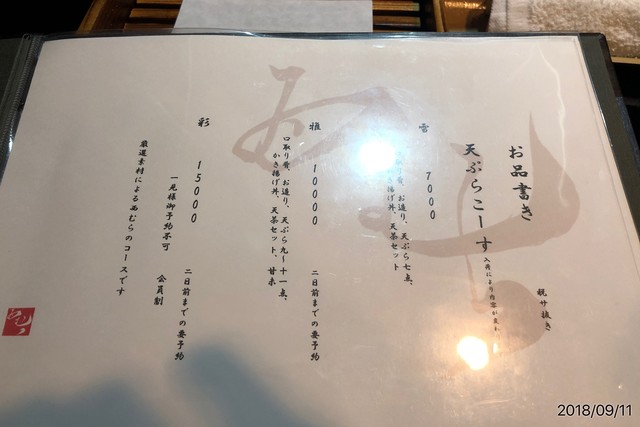 お品書き
税サ抜き
天ぷらこーす
入荷により内容が変わ
雪 7000
お造り、天ぷら七点、
かき揚げ丼、天茶セット
雅 10000 二日前までの要予約
口取り肴、お造り、天ぷら九～十一点、
かき揚げ丼、天茶セット、甘味
彩 15000 二日前までの要予約
一見様御予約不可 会員制
厳選素材によるぬむらのコースです
2018/09/11